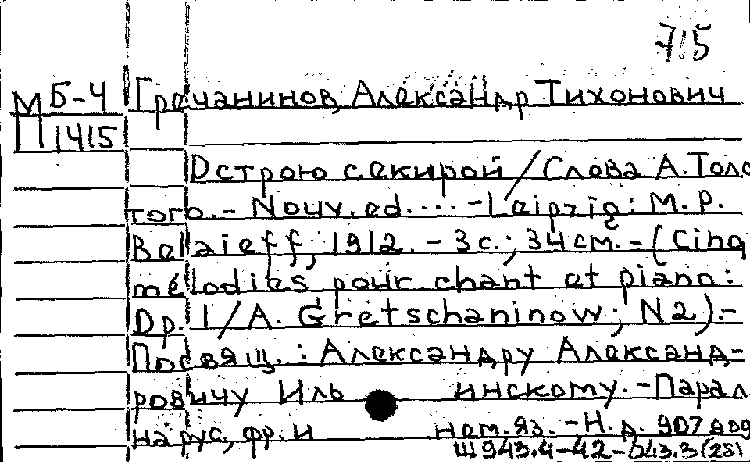 715
М Б-4 Гречанинов, Александр Тихонович
П 1415
Острою секирой / Слова А. Толс
того. - Nouv. ed. ... - Leipzig: M. P.
Belaieff, 1912. - 3 с.; 34 см. - (Cinq
mélodies pour chant et piano:
Op. 1 / A. Gretschaninow; N 2). -
Посвящ.: Александру Александ-
ровичу Иль инскому. - Парал
на рус, фр. и нем. яз. - Н. д. 907
Ш 943.4-42-